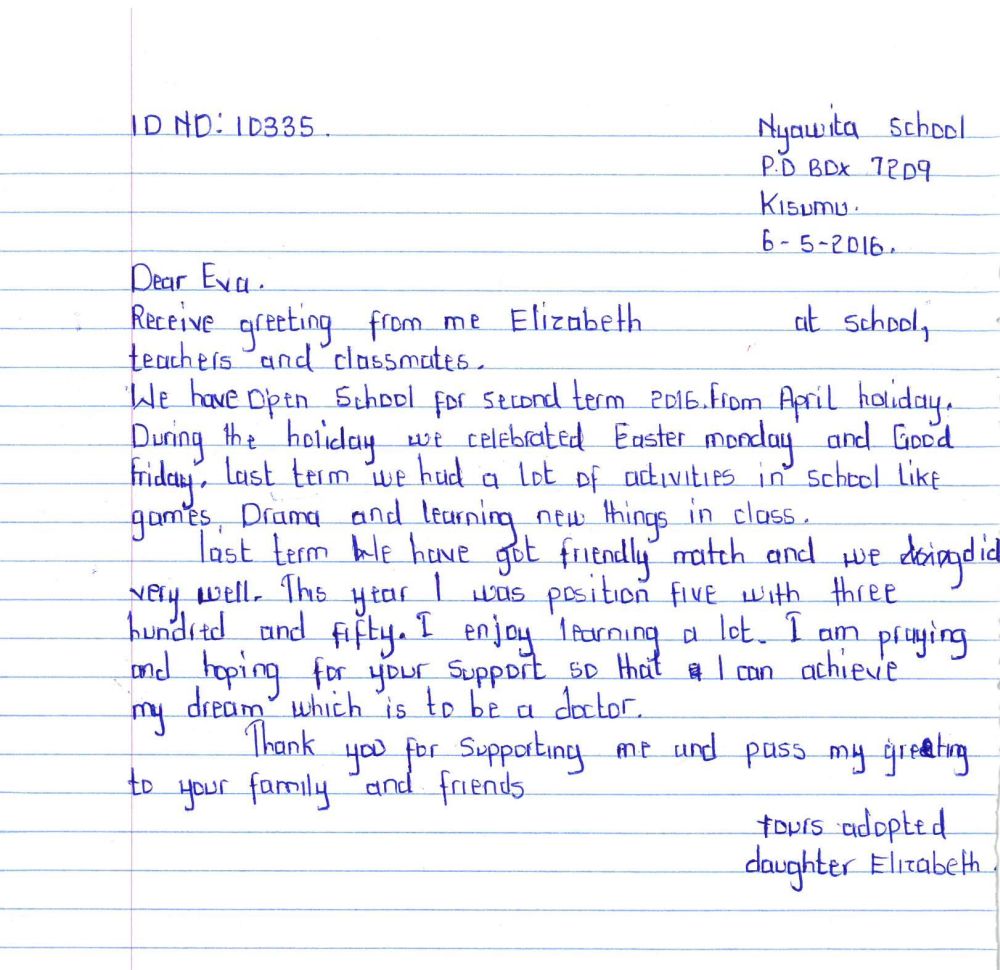 ID NO: ID335.
Nyawita School
P.O BOX 7209
Kisumu.
6-5-2016.
Dear Eva.
Receive greeting from me Elizabeth at school,
teachers and classmates.
We have Open School for second term 2016. From April holiday.
During the holiday we celebrated Easter monday and Good
friday. last term we had a lot of activities in school like
games, Drama and learning new things in class.
last term We have got friendly match and we doing did
very well. This year I was position five with three
hundred and fifty. I enjoy learning a lot. I am praying
and hoping for your support so that I can achieve
my dream which is to be a doctor.
Thank you for Supporting me and pass my greeting
to your family and friends
Yours adopted
daughter Elizabeth.